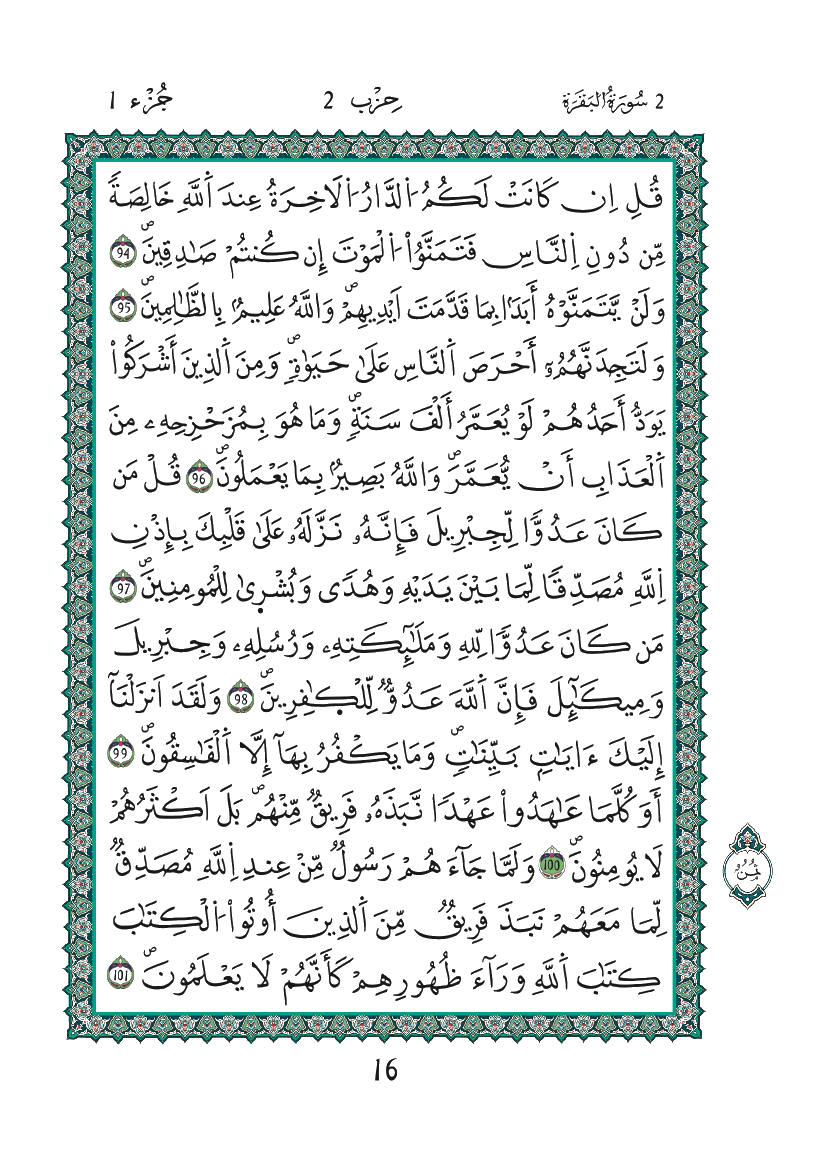 2 سُورَةُ الْبَقَرَةِ حِزْب 2 جُزْء 1
قُلِ اِن كَانَتْ لَكُمُ اُ۬لدَّارُ اُ۬لَاخِرَةُ عِندَ اَ۬للَّهِ خَالِصَةٗ
مِّن دُونِ اِ۬لنَّاسِ فَتَمَنَّوُاْ اُ۬لْمَوْتَ إِن كُنتُمْ صَٰدِقِينَۖ 94
وَلَنْ يَّتَمَنَّوْهُ أَبَدَاۢ بِمَا قَدَّمَتَ اَيْدِيهِمْۖ وَاللَّهُ عَلِيمُۢ بِالظَّٰلِمِينَۖ 95
وَلَتَجِدَنَّهُمُۥٓ أَحْرَصَ اَ۬لنَّاسِ عَلَىٰ حَيَوٰةٖۖ وَمِنَ اَ۬لذِينَ أَشْرَكُواْ
يَوَدُّ أَحَدُهُمْ لَوْ يُعَمَّرُ أَلْفَ سَنَةٖۖ وَمَا هُوَ بِمُزَحْزِحِهِۦ مِنَ
اَ۬لْعَذَابِ أَنْ يُّعَمَّرَۖ وَاللَّهُ بَصِيرُۢ بِمَا يَعْمَلُونَۖ 96 قُلْ مَن
كَانَ عَدُوّٗا لِّجِبْرِيلَ فَإِنَّهُۥ نَزَّلَهُۥ عَلَىٰ قَلْبِكَ بِإِذْنِ
اِ۬للَّهِ مُصَدِّقٗا لِّمَا بَيْنَ يَدَيْهِ وَهُدٗى وَبُشْرٜىٰ لِلْمُومِنِينَۖ 97
مَن كَانَ عَدُوّٗا لِّلهِ وَمَلَٰٓئِكَتِهِۦ وَرُسُلِهِۦ وَجِبْرِيلَ
وَمِيكَٰٓئِلَ فَإِنَّ اَ۬للَّهَ عَدُوّٞ لِّلْكٰٜفِرِينَۖ 98 وَلَقَدَ اَنزَلْنَآ
إِلَيْكَ ءَايَٰتِۢ بَيِّنَٰتٖۖ وَمَا يَكْفُرُ بِهَآ إِلَّا اَ۬لْفَٰسِقُونَۖ 99
أَوَكُلَّمَا عَٰهَدُواْ عَهْدٗا نَّبَذَهُۥ فَرِيقٞ مِّنْهُمۖ بَلَ اَكْثَرُهُمْ
لَا يُومِنُونَۖ 100 وَلَمَّا جَآءَهُمْ رَسُولٞ مِّنْ عِندِ اِ۬للَّهِ مُصَدِّقٞ
لِّمَا مَعَهُمْ نَبَذَ فَرِيقٞ مِّنَ اَ۬لذِينَ أُوتُواْ اُ۬لْكِتَٰبَ
كِتَٰبَ اَ۬للَّهِ وَرَآءَ ظُهُورِهِمْ كَأَنَّهُمْ لَا يَعْلَمُونَۖ 101
ثُمُن
16